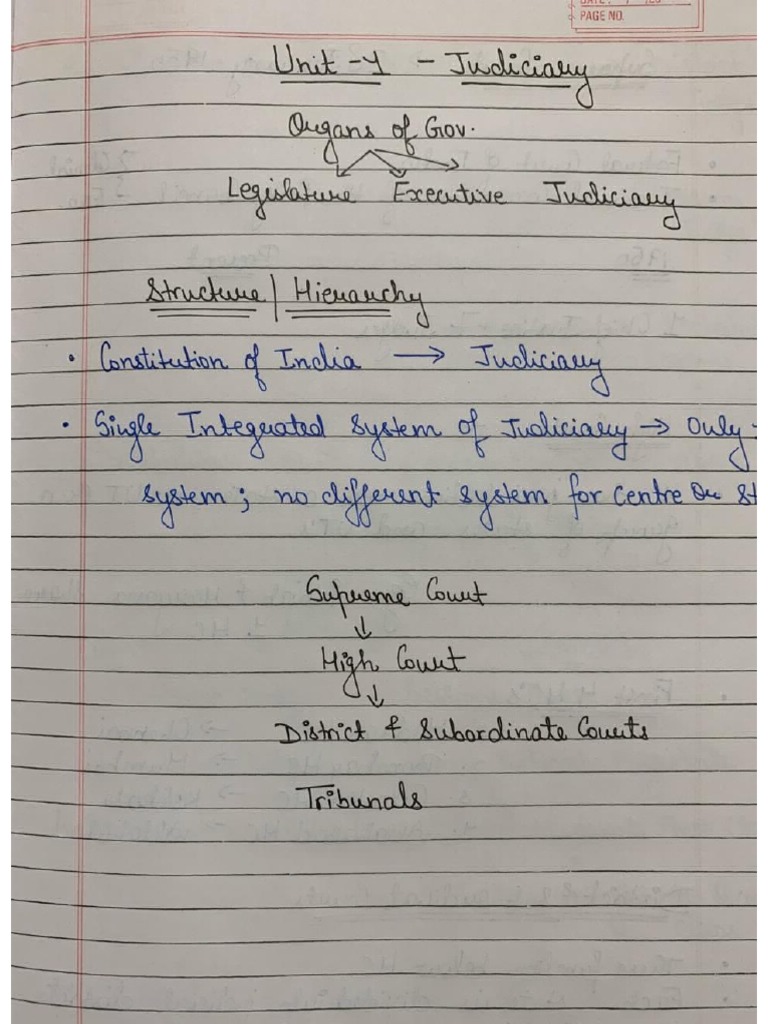 PAGE NO.
Unit -1 - Judiciary
Organs of Gov.
Legislature Executive Judiciary
Structure | Hierarchy
• Constitution of India → Judiciary
• Single Integrated System of Judiciary → Only
system; no different system for Centre or St
Supreme Court
↓
High Court
↓
District & Subordinate Courts
Tribunals